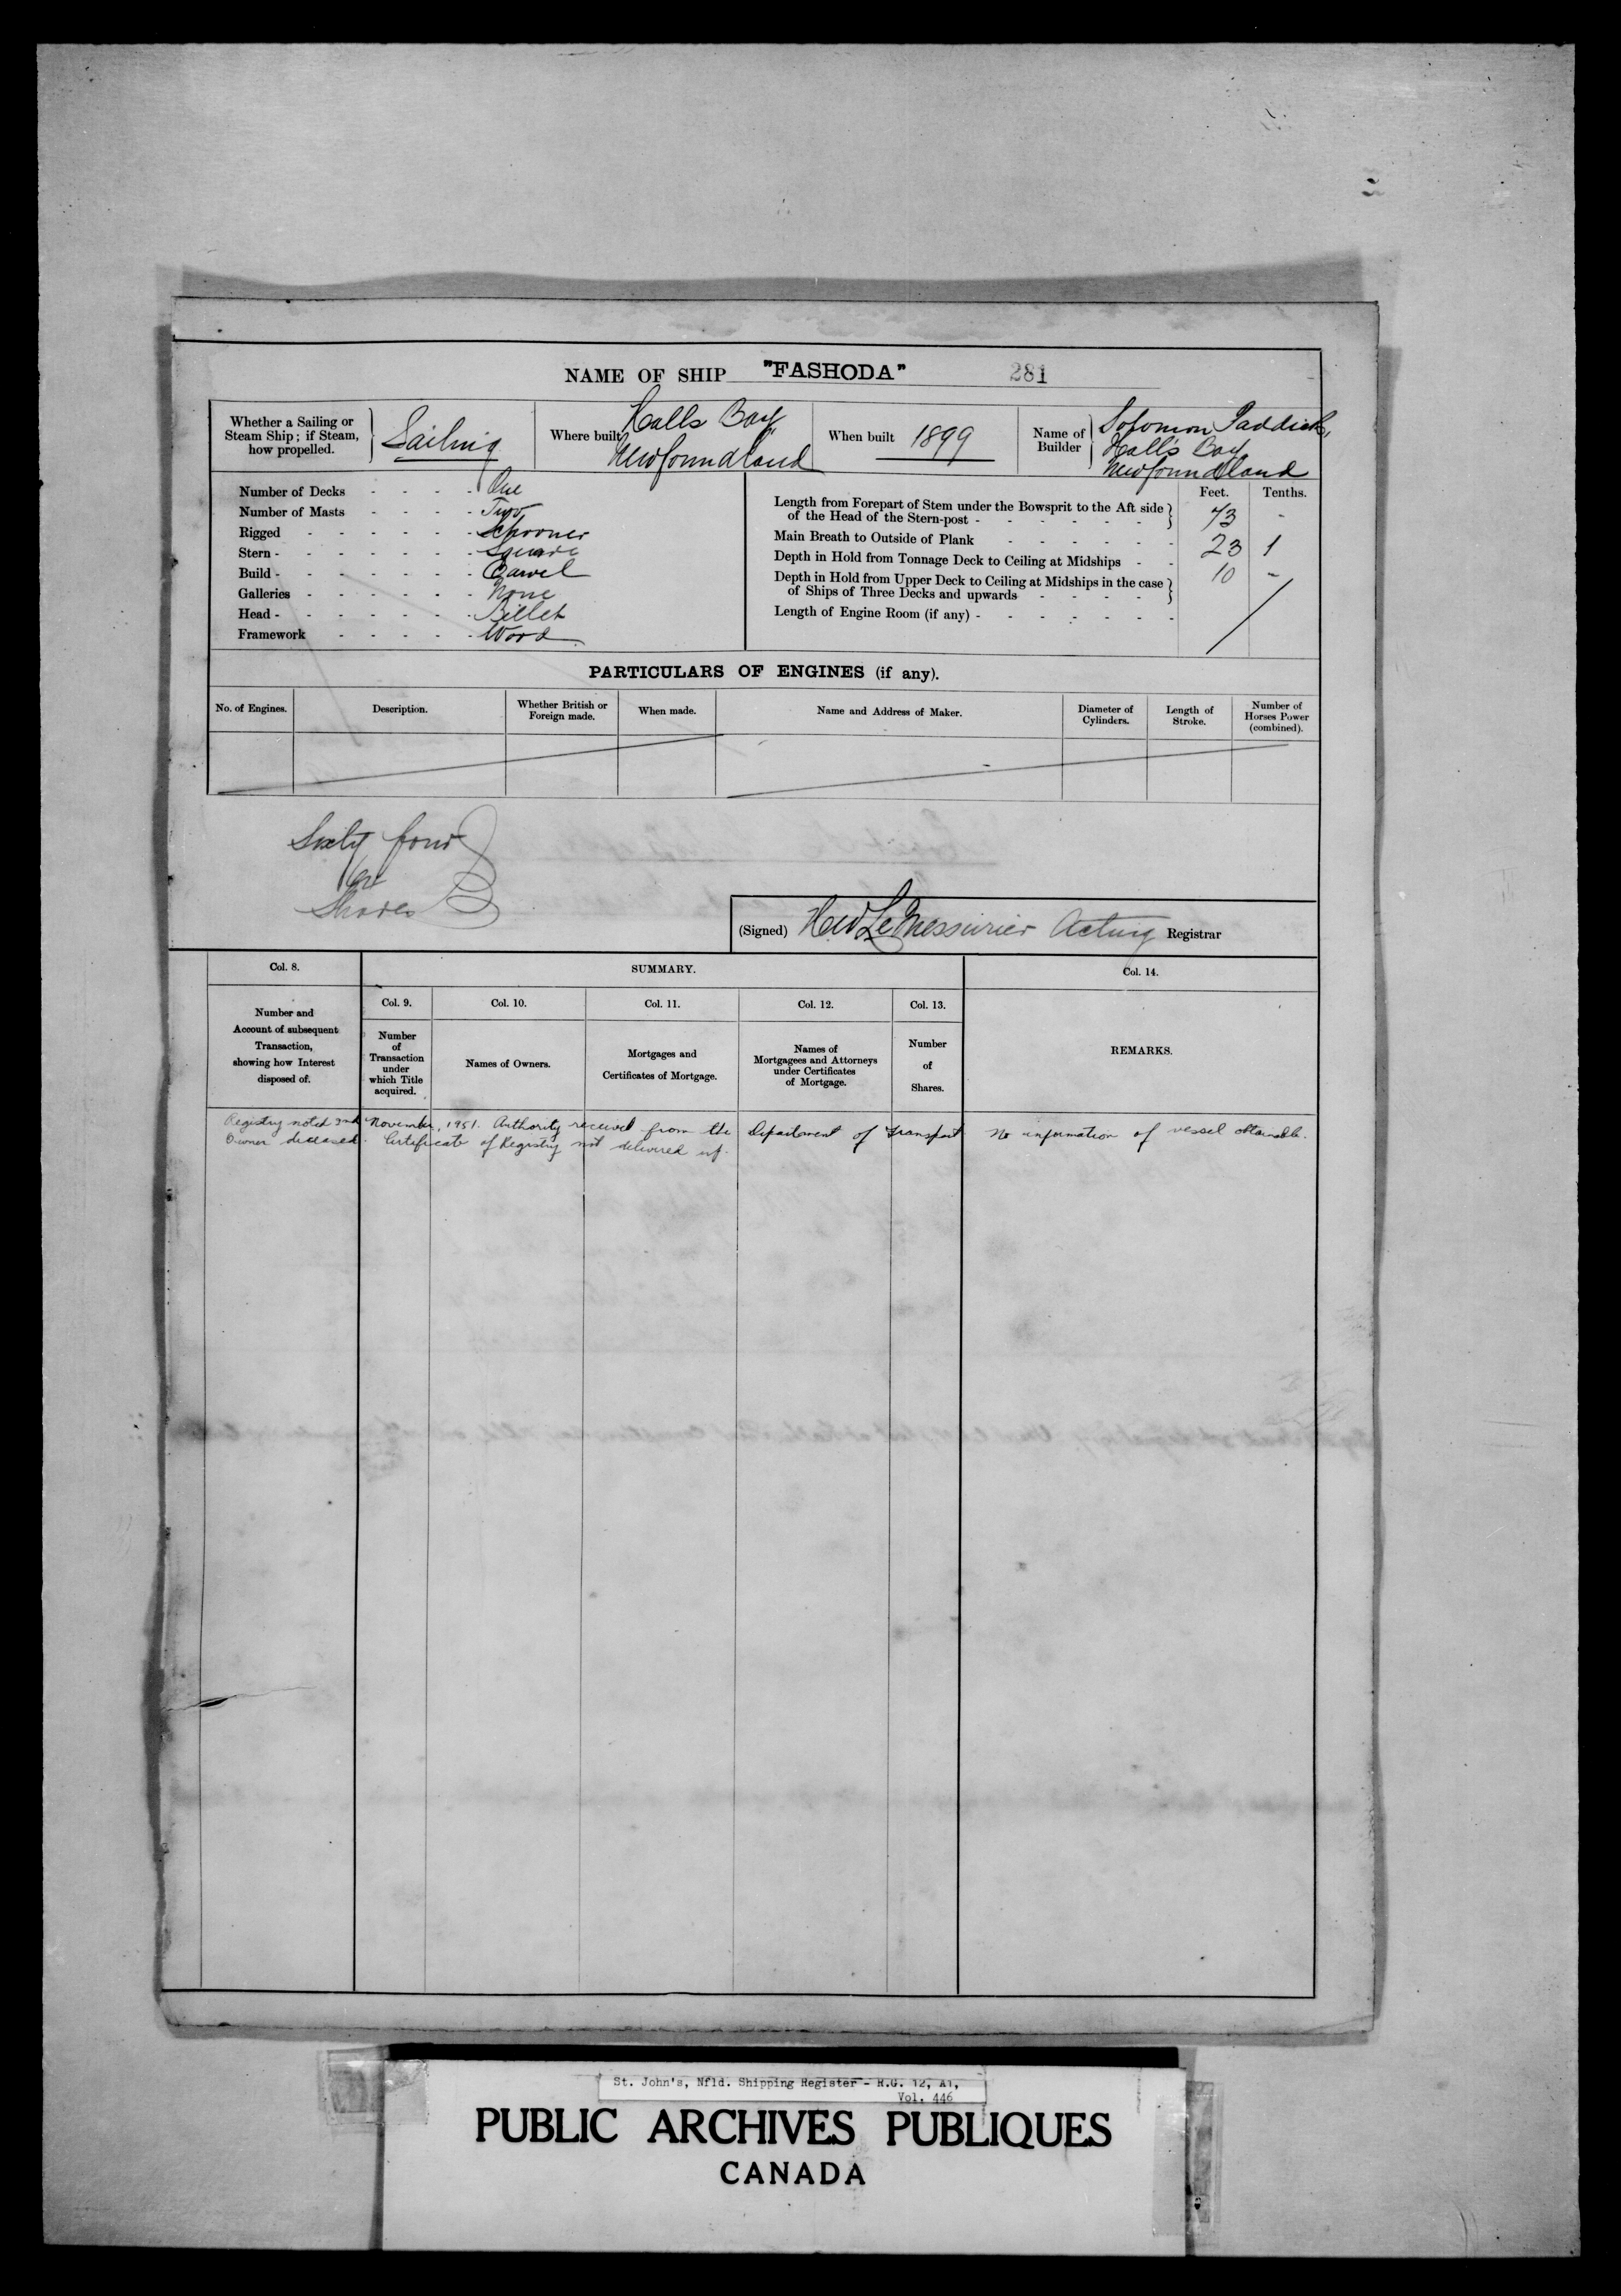 NAME OF SHIP "FASHODA" 281
Whether a Sailing or Steam Ship; if Steam, how propelled. Sailing
Where built Halls Bay Newfoundland
When built 1899
Name of Builder Solomon Paddick, Hall's Bay Newfoundland
Number of Decks - - - - One
Number of Masts - - - - Two
Rigged - - - - - Schooner
Stern - - - - - - - Square
Build - - - - - - - Carvel
Galleries - - - - - - None
Head - - - - - - - Billet
Framework - - - - - Wood
Feet. Tenths.
Length from Forepart of Stem under the Bowsprit to the Aft side
of the Head of the Stern-post - - - - - - 73 -
Main Breath to Outside of Plank - - - - - - 23 1
Depth in Hold from Tonnage Deck to Ceiling at Midships - - 10 -
Depth in Hold from Upper Deck to Ceiling at Midships in the case
of Ships of Three Decks and upwards - - - -
Length of Engine Room (if any) - - - - - - -
PARTICULARS OF ENGINES (if any).
No. of Engines. Description. Whether British or Foreign made. When made. Name and Address of Maker. Diameter of Cylinders. Length of Stroke. Number of Horses Power (combined).
Sixty four
64
Shares
(Signed) H W LeMessurier Acting Registrar
Col. 8. SUMMARY. Col. 14.
Col. 9. Col. 10. Col. 11. Col. 12. Col. 13.
Number and Account of subsequent Transaction, showing how Interest disposed of.
Number of Transaction under which Title acquired.
Names of Owners.
Mortgages and Certificates of Mortgage.
Names of Mortgagees and Attorneys under Certificates of Mortgage.
Number of Shares.
REMARKS.
Registry noted 2nd November, 1951. Authority received from the Department of Transport No information of vessel obtainable.
Owner deceased. Certificate of Registry not delivered up.
St. John's, Nfld. Shipping Register - R.G. 12, A1,
Vol. 446
PUBLIC ARCHIVES PUBLIQUES
CANADA